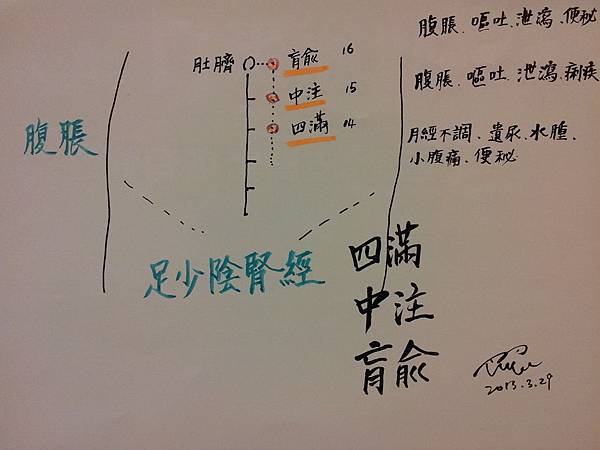 腹脹、嘔吐、泄瀉、便秘
肚臍 肓俞 16
腹脹、嘔吐、泄瀉、痢疾
中注 15
四滿 14
月經不調、遺尿、水腫、
小腹痛、便秘
腹脹
足少陰腎經
四滿
中注
肓俞
2013.3.29